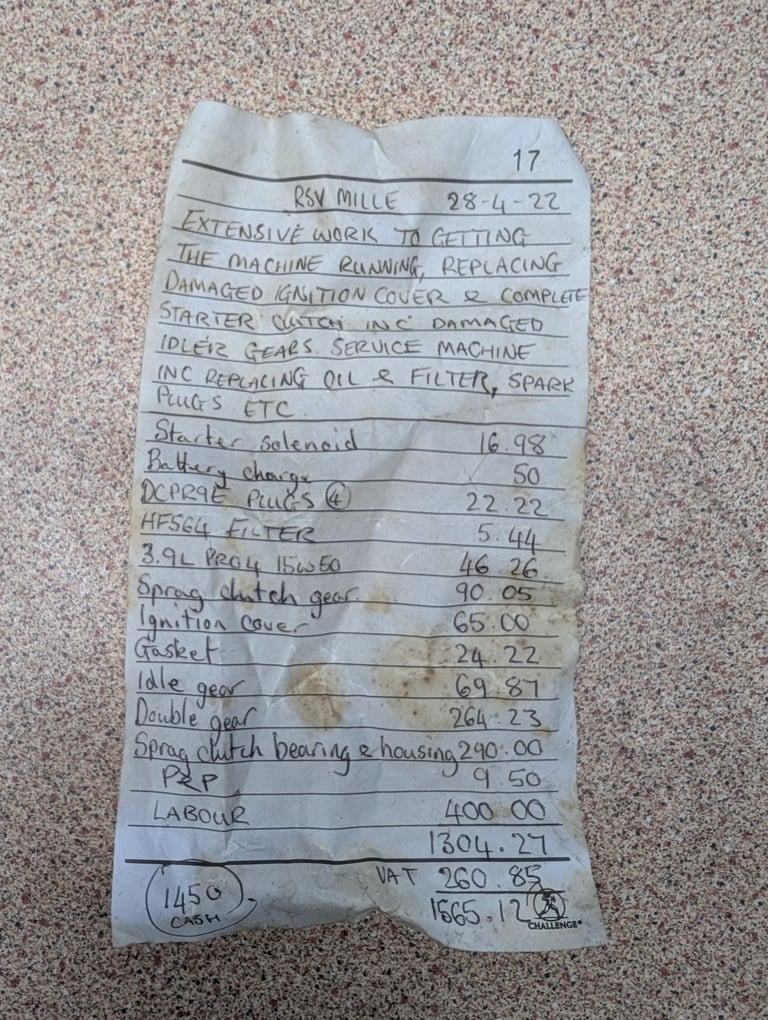 17
RSV MILLE 28-4-22
EXTENSIVE WORK TO GETTING
THE MACHINE RUNNING, REPLACING
DAMAGED IGNITION COVER & COMPLETE
STARTER CLUTCH INC DAMAGED
IDLER GEARS. SERVICE MACHINE
INC REPLACING OIL & FILTER, SPARK
PLUGS ETC
Starter solenoid 16.98
Battery charge 50
DCPR9E PLUGS (4) 22.22
HF564 FILTER 5.44
3.9L PRO4 15W50 46.26
Sprag clutch gear 90.05
Ignition cover 65.00
Gasket 24.22
Idle gear 69.87
Double gear 264.23
Sprag clutch bearing & housing 290.00
P&P 9.50
LABOUR 400.00
1304.27
VAT 260.85
1450 CASH 1565.12
CHALLENGE®